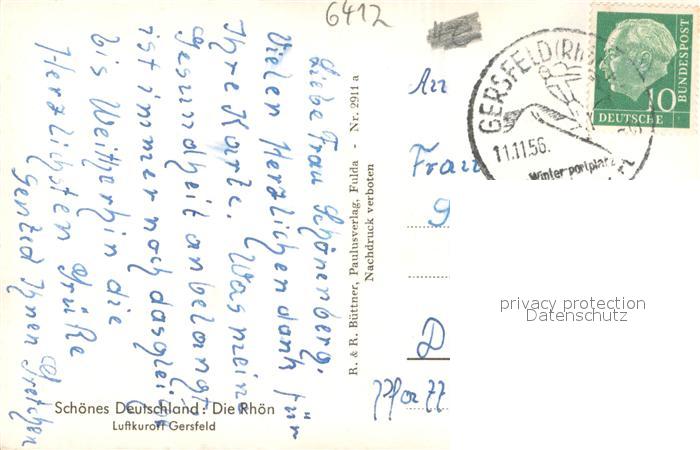 6412
Liebe Frau Schönenberg.
Vielen Herzlichen dank für
Ihre Karte. Was meine
Gesundheit anbelangt
ist immer noch das gleiche
bis Weiterhin die
Herzlichsten Grüße
sended Ihnen Gretchen
Schönes Deutschland: Die Rhön
Luftkurort Gersfeld
R. & R. Büttner, Paulusverlag, Fulda - Nr. 2911 a
Nachdruck verboten
GERSFELD (RHÖN)
11.11.56.
Wintersportplatz
DEUTSCHE
BUNDESPOST
10
An
Frau
D
privacy protection
Datenschutz